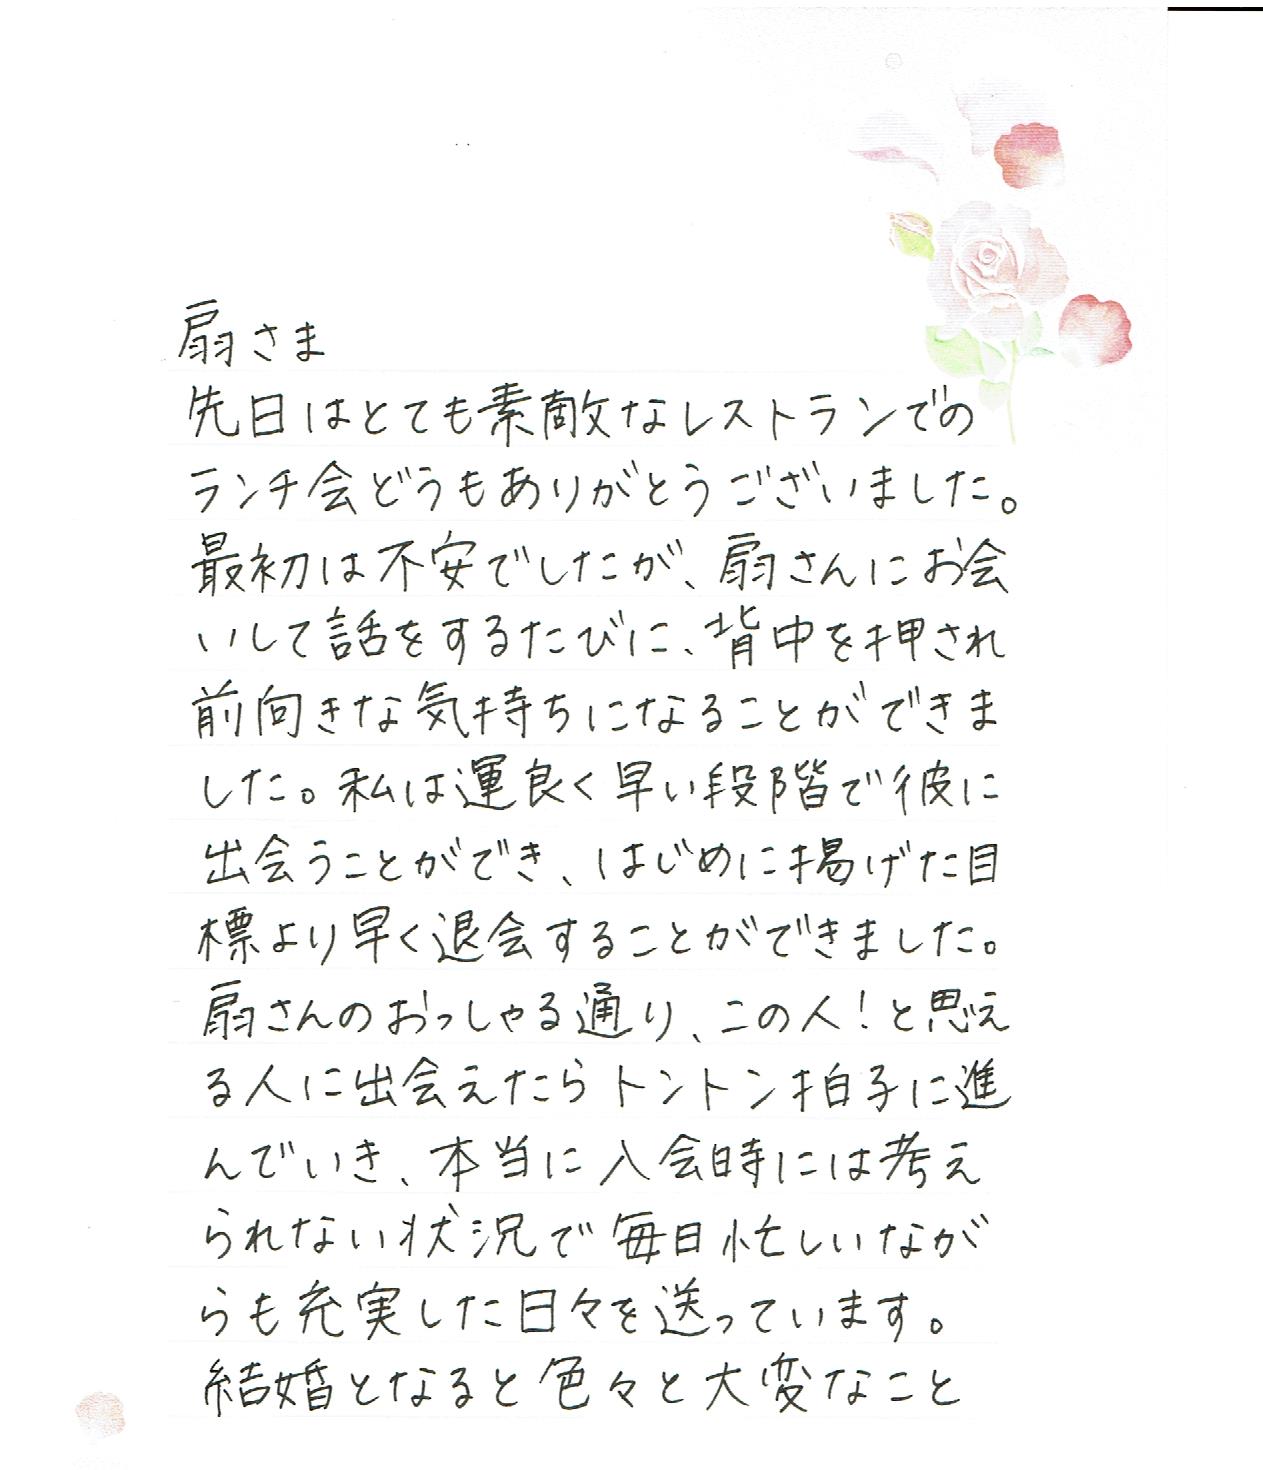 扇さま
先日はとても素敵なレストランでの
ランチ会どうもありがとうございました。
最初は不安でしたが、扇さんにお会
いして話をするたびに、背中を押され
前向きな気持ちになることができま
した。私は運良く早い段階で彼に
出会うことができ、はじめに掲げた目
標より早く退会することができました。
扇さんのおっしゃる通り、この人！と思え
る人に出会えたらトントン拍子に進
んでいき、本当に入会時には考え
られない状況で毎日忙しいなが
らも充実した日々を送っています。
結婚となると色々と大変なこと